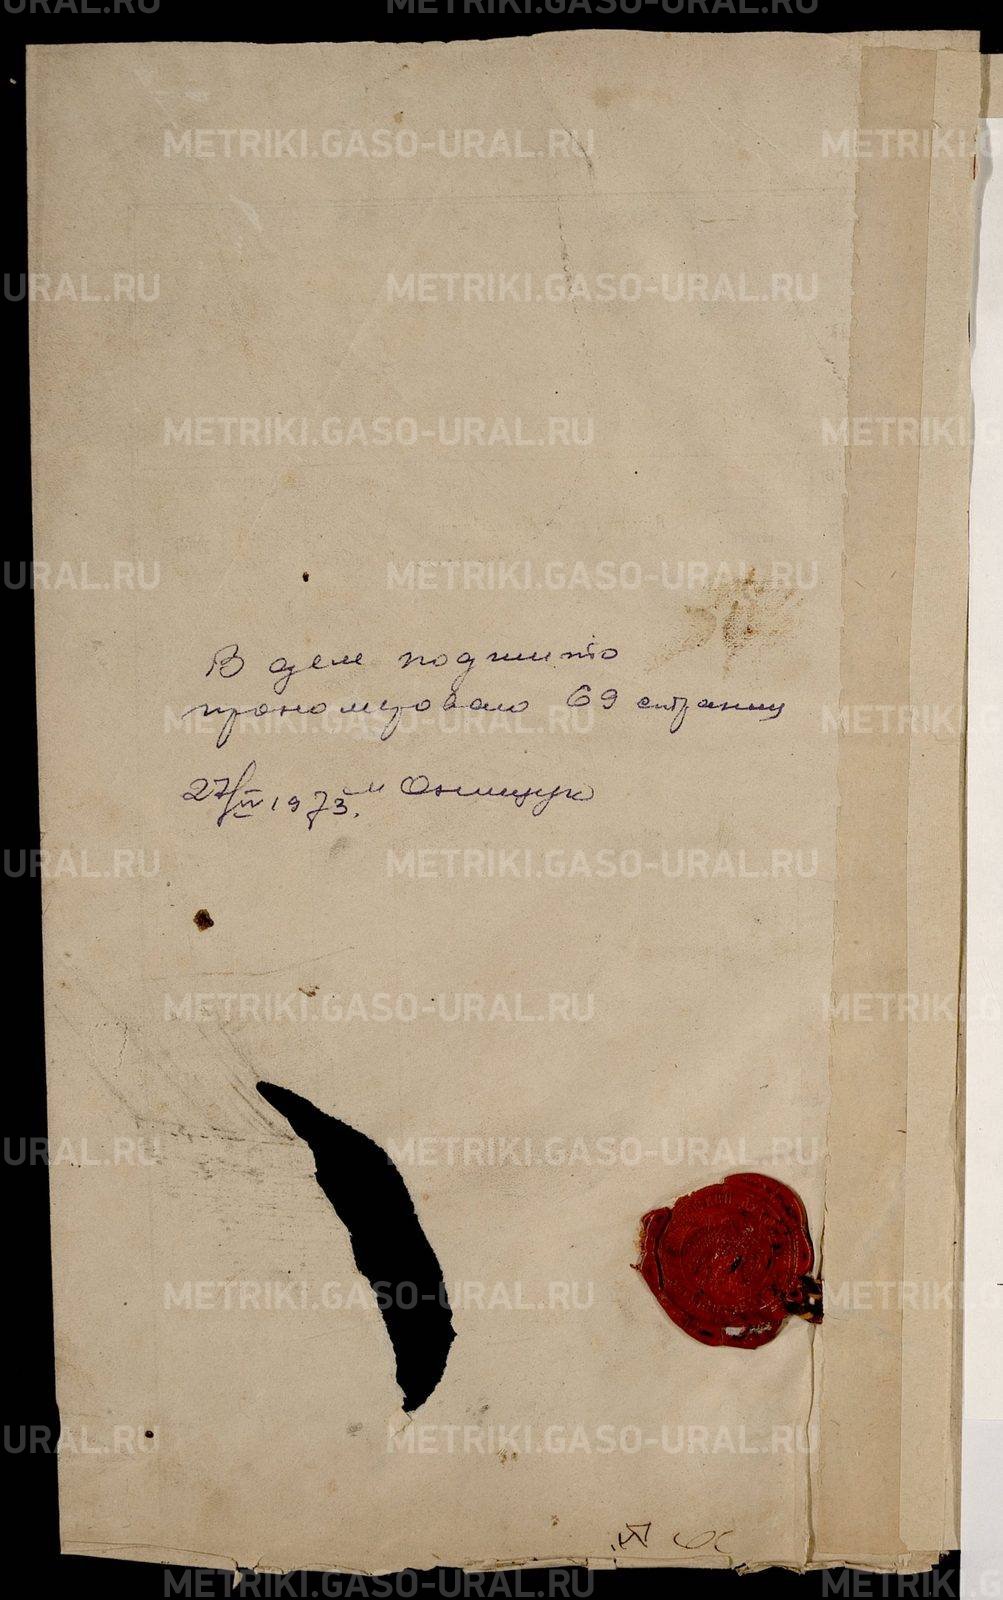 METRIKI.GASO-URAL.RU
В деле подшито
пронумеровано 69 страниц
27/IV 1973. Онищук